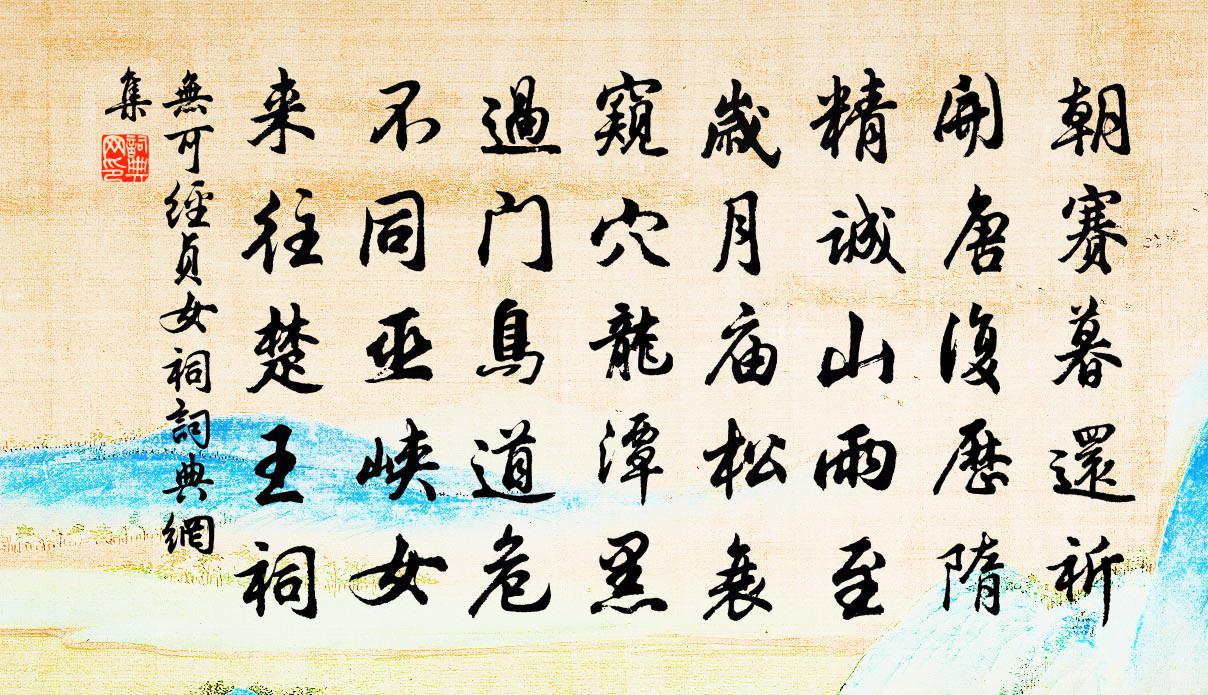 朝賽暮還祈
開唐復歷隋
精誠山雨至
歲月庙松衰
窺穴龍潭黑
過门鳥道危
不同巫峽女
来往楚王祠
無可經貞女祠詞典網
集
詞典
网印